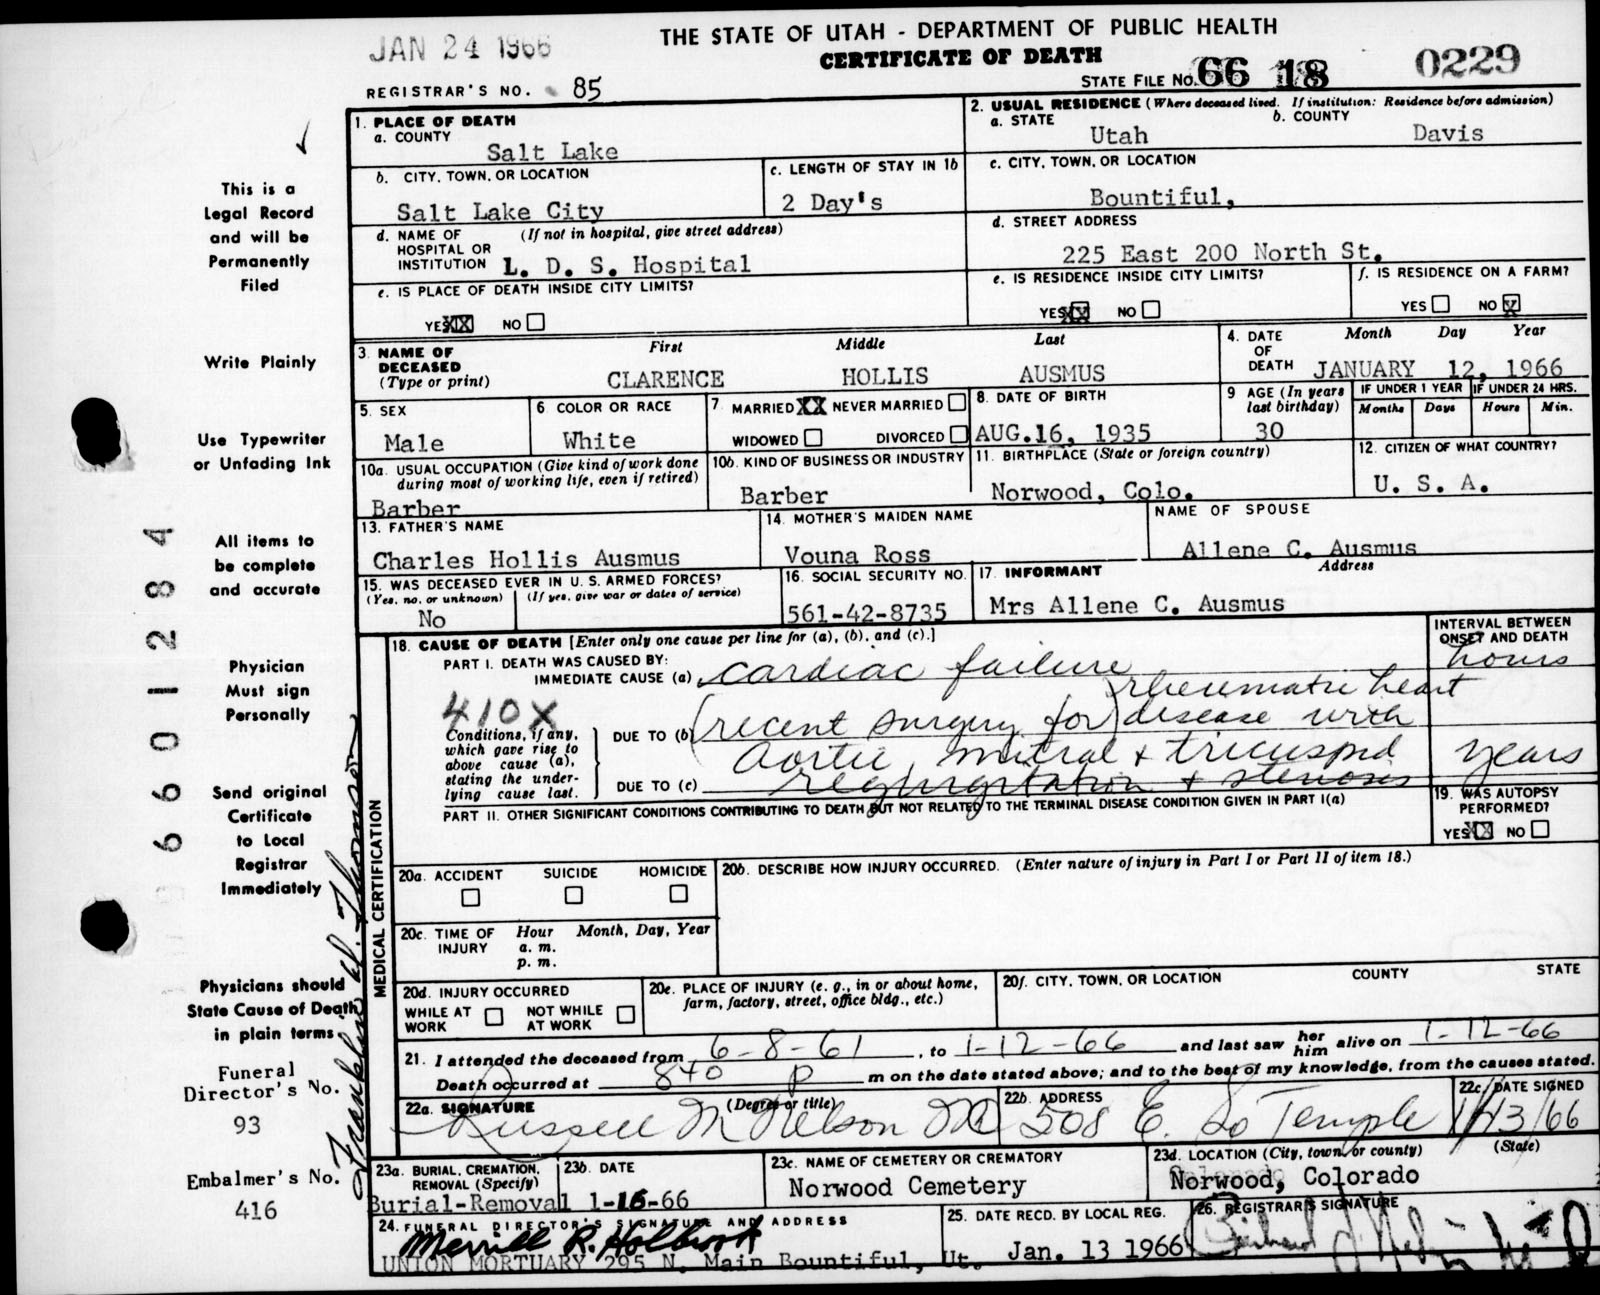 JAN 24 1966
THE STATE OF UTAH - DEPARTMENT OF PUBLIC HEALTH
CERTIFICATE OF DEATH
REGISTRAR'S NO. 85
STATE FILE NO. 66 18 0229
1. PLACE OF DEATH
a. COUNTY
Salt Lake
2. USUAL RESIDENCE (Where deceased lived. If institution: Residence before admission)
a. STATE Utah
b. COUNTY Davis
b. CITY, TOWN, OR LOCATION
Salt Lake City
c. LENGTH OF STAY IN 1b
2 Day's
c. CITY, TOWN, OR LOCATION
Bountiful,
d. NAME OF HOSPITAL OR INSTITUTION (If not in hospital, give street address)
L. D. S. Hospital
d. STREET ADDRESS
225 East 200 North St.
e. IS PLACE OF DEATH INSIDE CITY LIMITS?
YES XX NO
e. IS RESIDENCE INSIDE CITY LIMITS?
YES XX NO
f. IS RESIDENCE ON A FARM?
YES NO X
3. NAME OF DECEASED (Type or print)
First Middle Last
CLARENCE HOLLIS AUSMUS
4. DATE OF DEATH
Month Day Year
JANUARY 12, 1966
5. SEX
Male
6. COLOR OR RACE
White
7. MARRIED XX NEVER MARRIED
WIDOWED DIVORCED
8. DATE OF BIRTH
AUG.16, 1935
9 AGE (In years last birthday)
30
IF UNDER 1 YEAR
Months Days
IF UNDER 24 HRS.
Hours Min.
10a. USUAL OCCUPATION (Give kind of work done during most of working life, even if retired)
Barber
10b. KIND OF BUSINESS OR INDUSTRY
Barber
11. BIRTHPLACE (State or foreign country)
Norwood, Colo.
12. CITIZEN OF WHAT COUNTRY?
U. S. A.
13. FATHER'S NAME
Charles Hollis Ausmus
14. MOTHER'S MAIDEN NAME
Vouna Ross
NAME OF SPOUSE
Allene C. Ausmus
15. WAS DECEASED EVER IN U. S. ARMED FORCES?
(Yes, no, or unknown) (If yes, give war or dates of service)
No
16. SOCIAL SECURITY NO.
561-42-8735
17. INFORMANT Address
Mrs Allene C. Ausmus
18. CAUSE OF DEATH [Enter only one cause per line for (a), (b), and (c).]
INTERVAL BETWEEN ONSET AND DEATH
PART I. DEATH WAS CAUSED BY:
IMMEDIATE CAUSE (a) cardiac failure
hours
410X
Conditions, if any, which gave rise to above cause (a), stating the underlying cause last.
DUE TO (b) (recent surgery for) rheumatic heart disease with
Aortic, mitral + tricuspid years
DUE TO (c) regurgitation + stenosis
PART II. OTHER SIGNIFICANT CONDITIONS CONTRIBUTING TO DEATH BUT NOT RELATED TO THE TERMINAL DISEASE CONDITION GIVEN IN PART I(a)
19. WAS AUTOPSY PERFORMED?
YES XX NO
MEDICAL CERTIFICATION
20a. ACCIDENT SUICIDE HOMICIDE
20b. DESCRIBE HOW INJURY OCCURRED. (Enter nature of injury in Part I or Part II of item 18.)
20c. TIME OF INJURY
Hour Month, Day, Year
a. m.
p. m.
20d. INJURY OCCURRED
WHILE AT WORK NOT WHILE AT WORK
20e. PLACE OF INJURY (e. g., in or about home, farm, factory, street, office bldg., etc.)
20f. CITY, TOWN, OR LOCATION COUNTY STATE
21. I attended the deceased from 6-8-61, to 1-12-66 and last saw her him alive on 1-12-66
Death occurred at 840 P m on the date stated above; and to the best of my knowledge, from the causes stated.
22a. SIGNATURE (Degree or title)
Russell M Nelson MD
22b. ADDRESS
508 E. So Temple
22c. DATE SIGNED
1/13/66
23a. BURIAL, CREMATION, REMOVAL (Specify)
Burial-Removal
23b. DATE
1-16-66
23c. NAME OF CEMETERY OR CREMATORY
Norwood Cemetery
23d. LOCATION (City, town, or county) (State)
Norwood, Colorado
24. FUNERAL DIRECTOR'S SIGNATURE AND ADDRESS
Merrill R. Holbrook
UNION MORTUARY 295 N. Main Bountiful, Ut.
25. DATE RECD. BY LOCAL REG.
Jan. 13 1966
26. REGISTRAR'S SIGNATURE
This is a
Legal Record
and will be
Permanently
Filed
Write Plainly
Use Typewriter
or Unfading Ink
All items to
be complete
and accurate
Physician
Must sign
Personally
Send original
Certificate
to Local
Registrar
Immediately
Physicians should
State Cause of Death
in plain terms
Funeral
Director's No.
93
Embalmer's No.
416
6601284
Franklin W. Thomson